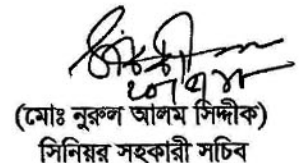 (মোঃ নুরুল আলম সিদ্দীক)
সিনিয়র সহকারী সচিব